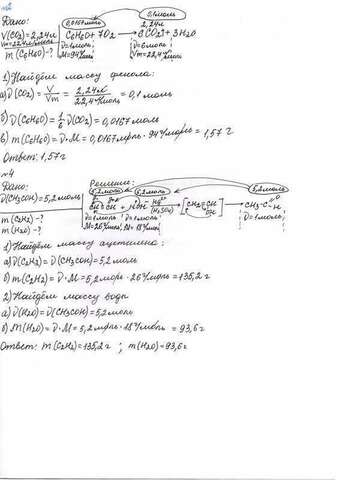 №2
Дано:
V(CO2)=2,24л
Vm=22,4л/моль
m(C6H6O)-?
0,0167моль 0,1моль
2,24л
C6H6O + 7O2 → 6CO2 + 3H2O
ν=1моль ν=6моль
M=94г/моль Vm=22,4л/моль
1) Найдём массу фенола:
а) ν(CO2) = V/Vm = 2,24л/22,4л/моль = 0,1 моль
б) ν(C6H6O) = 1/6 ν(CO2) = 0,0167моль
в) m(C6H6O) = ν·M = 0,0167моль · 94г/моль = 1,57 г
Ответ: 1,57г
№4
Дано: Решение:
ν(CH3COH)=5,2моль
m(C2H2)-?
m(H2O)-?
5,2моль 5,2моль 5,2моль
CH≡CH + HOH Hg2+ (H2SO4) → [CH2=CH OH] → CH3-C=O H
ν=1моль ν=1моль ν=1моль
M=26г/моль M=18г/моль
1) Найдём массу ацетилена:
а) ν(C2H2) = ν(CH3COH) = 5,2моль
б) m(C2H2) = ν·M = 5,2моль · 26г/моль = 135,2г
2) Найдём массу воды
а) ν(H2O) = ν(CH3COH) = 5,2моль
б) m(H2O) = ν·M = 5,2моль · 18г/моль = 93,6г
Ответ: m(C2H2)=135,2г ; m(H2O)=93,6г